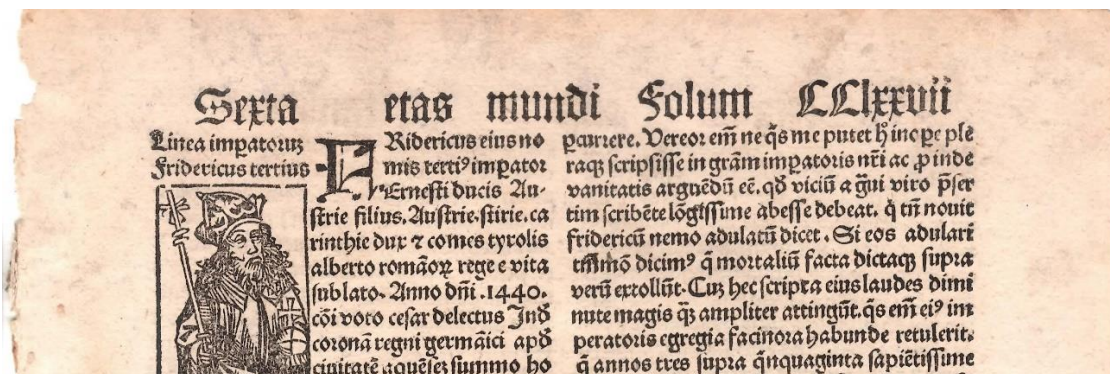 Sexta etas mundi Folum CClxxvii
Linea impatorum
Fridericus tertius
FRidericus eius no
mis terti⁹ impator
Ernesti ducis Au-
strie filius. Austrie. stirie. ca
rinthie dux ⁊ comes tyrolis
alberto romãoꝝ rege e vita
sublato. Anno dñi .1440.
cõi voto cesar delectus Ind
coronã regni germãici apd
ciuitatẽ aquẽseꝫ summo ho
ꝑcurrere. Vereor em̃ ne q̃s me putet h̃ inepe plẽ
raqꝫ scripsisse in grãm impatoris nr̃i ac ꝓ inde
vanitatis arguẽdũ eẽ. qd̃ viciũ a gui viro p̃ser
tim scribẽte lõgissime abesse debeat. q̃ tñ nouit
fridericũ nemo adulatũ dicet. Si eos adulari
dicim⁹ q̃ mortaliũ facta dictaqꝫ supra
verũ extollũt. Cuꝫ hec scripta eius laudes dimi
nute magis qꝫ ampliter attingũt. qs em̃ ei⁹ im
peratoris egregia facinora habunde retulerit.
q̃ annos tres supra q̃nquaginta sapiẽtissime